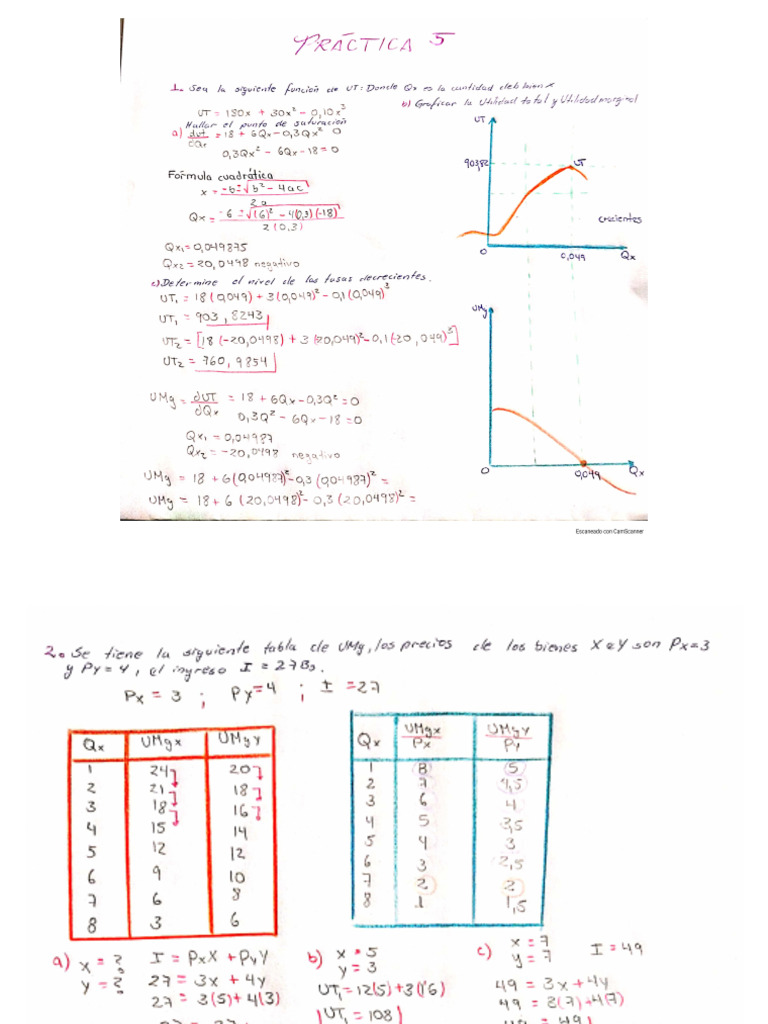 PRÁCTICA 5
1. Sea la siguiente función de UT: Donde Qx es la cantidad del bien X
UT = 180x + 30x² - 0,10x³
Hallar el punto de saturación
a) dUT/dQx = 18 + 6Qx - 0,3Qx² 0
0,3Qx² - 6Qx - 18 = 0
Fórmula cuadrática
x = -b ± √b² - 4ac / 2a
Qx = -6 ± √(6)² - 4(0,3)(-18) / 2(0,3)
Qx₁ = 0,049875
Qx₂ = 20,0498 negativo
c) Determine el nivel de las tasas decrecientes.
UT₁ = 18(0,049) + 3(0,049)² - 0,1(0,049)³
UT₁ = 903,8243
UT₂ = [18(-20,0498) + 3(20,049)² - 0,1(20,049)³]
UT₂ = 760,9854
UMg = dUT/dQx = 18 + 6Qx - 0,3Q² = 0
0,3Q² - 6Qx - 18 = 0
Qx₁ = 0,04987
Qx₂ = -20,0498 negativo
UMg = 18 + 6(0,04987)² - 0,3(0,04987)² =
UMg = 18 + 6(20,0498)² - 0,3(20,0498)² =
b) Graficar la Utilidad total y Utilidad marginal
UT
903,82
UT
crecientes
0
0,049
Qx
UMg
0
0,049
Qx
Escaneado con CamScanner
2. Se tiene la siguiente tabla de UMg, los precios de los bienes X e Y son Px=3
y Py=4, el ingreso I = 27Bs.
Px = 3 ; Py=4 ; I =27
Qx UMgx UMgY
1 24 20
2 21 18
3 18 16
4 15 14
5 12 12
6 9 10
7 6 8
8 3 6
Qx UMgx/Px UMgY/Py
1 8 5
2 7 4,5
3 6 4
4 5 3,5
5 4 3
6 3 2,5
7 2 2
8 1 1,5
a) x = ? I = PxX + PyY
y = ? 27 = 3x + 4y
27 = 3(5) + 4(3)
b) x = 5
y = 3
UT₁ = 12(5) + 3(16)
UT₁ = 108
c) x = 7 I = 49
y = 7
49 = 3x + 4y
49 = 3(7) + 4(7)
49 = 49